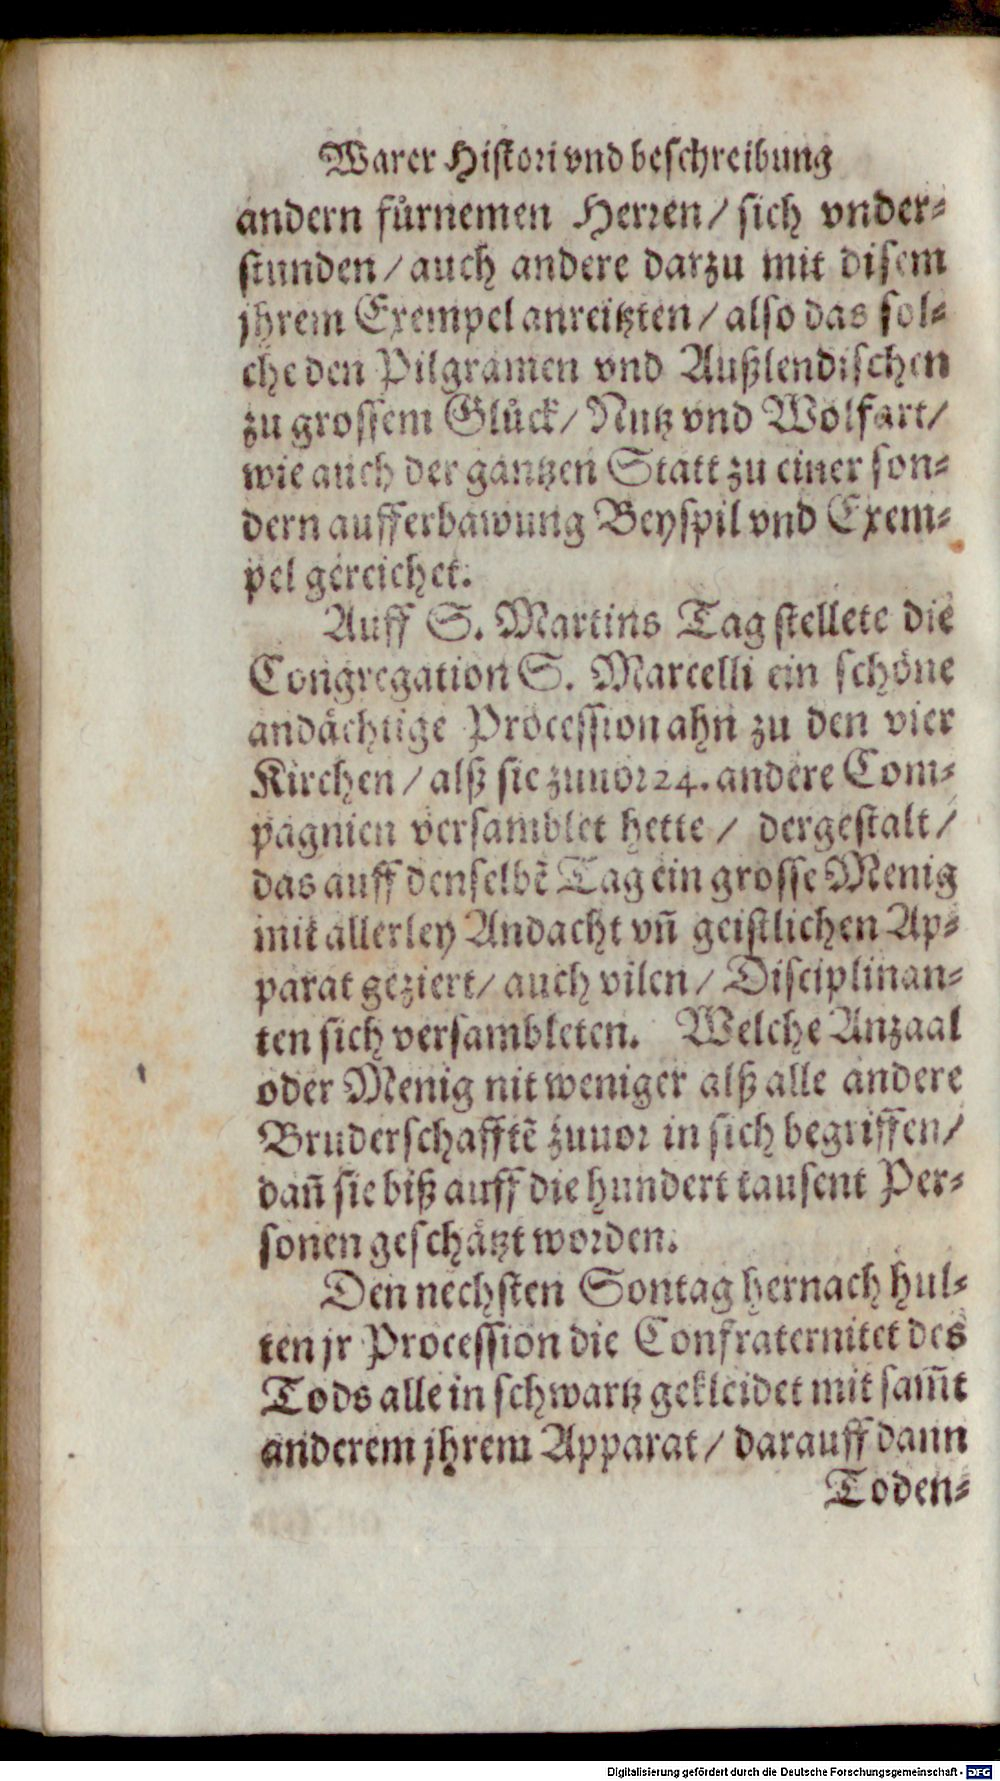 Warer Histori vnd beschreibung
andern fürnemen Herren / sich vnder-
stunden / auch andere darzu mit disem
jhrem Exempel anreitzten / also das sol-
che den Pilgramen vnd Außlendischen
zu grossem Glück / Nutz vnd Wolfart /
wie auch der gantzen Statt zu einer son-
dern aufferbawung Beyspil vnd Exem-
pel gereichet.
Auff S. Martins Tag stellete die
Congregation S. Marcelli ein schöne
andächtige Procession ahn zu den vier
Kirchen / alß sie zuuor 24. andere Com-
pagnien versamblet hette / dergestalt /
das auff denselbẽ Tag ein grosse Menig
mit allerley Andacht vñ geistlichen Ap-
parat geziert / auch vilen / Disciplinan-
ten sich versambleten. Welche Anzaal
oder Menig nit weniger alß alle andere
Bruderschafftẽ zuuor in sich begriffen /
dañ sie biß auff die hundert tausent Per-
sonen geschätzt worden.
Den nechsten Sontag hernach hul-
ten jr Procession die Confraternitet des
Tods alle in schwartz gekleidet mit sam̃t
anderem jhrem Apparat / darauff dann
Toden-
Digitalisierung gefördert durch die Deutsche Forschungsgemeinschaft - DFG